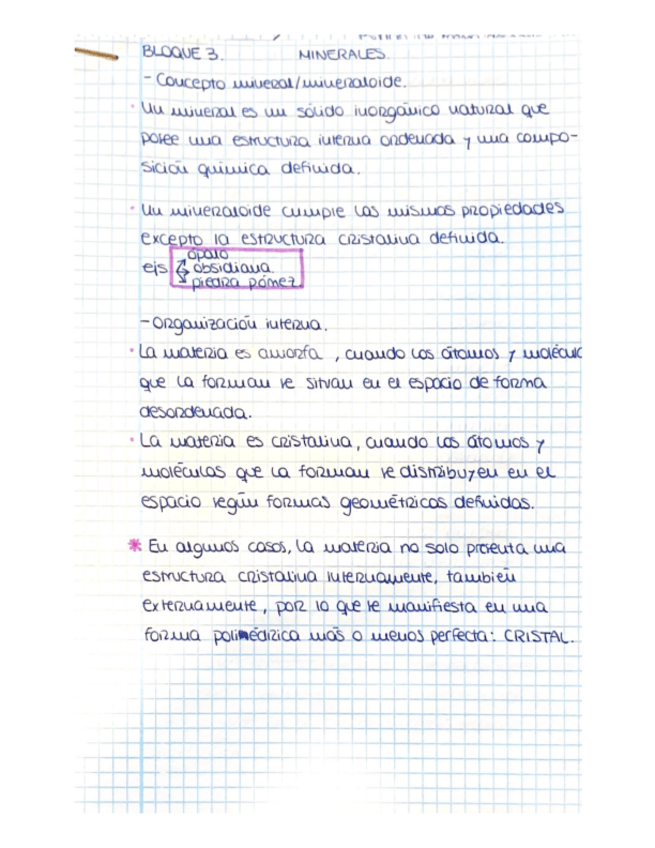 BLOQUE 3. MINERALES.
- Concepto mineral/mineraloide.
· Un mineral es un sólido inorgánico natural que
posee una estructura interna ordenada y una compo-
sición química definida.
· Un mineraloide cumple las mismas propiedades
excepto la estructura cristalina definida.
ópalo
ejs obsidiana
piedra pómez
- Organización interna.
· La materia es amorfa, cuando los átomos y molécul
que la forman se sitúan en el espacio de forma
desordenada.
· La materia es cristalina, cuando los átomos y
moléculas que la forman se distribuyen en el
espacio según formas geométricas definidas.
* En algunos casos, la materia no solo presenta una
estructura cristalina internamente, también
externamente, por lo que se manifiesta en una
forma poliédrica más o menos perfecta: CRISTAL.